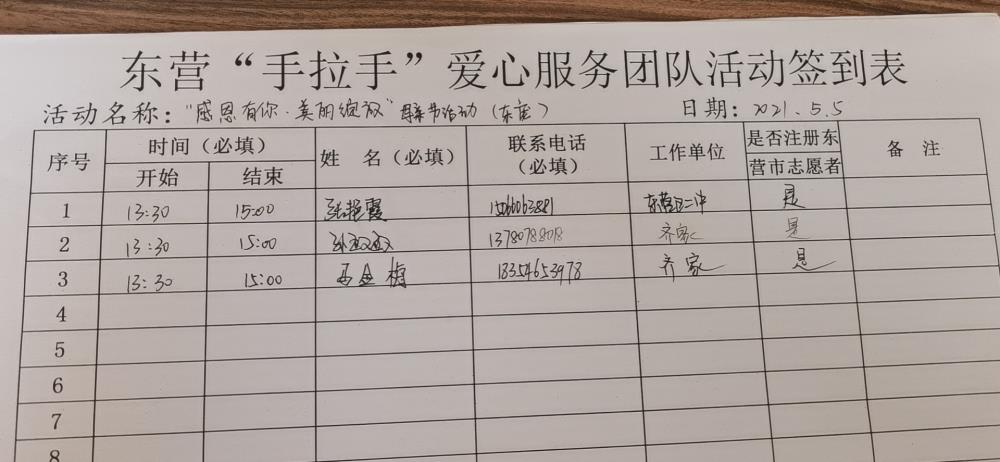 东营“手拉手”爱心服务团队活动签到表
活动名称：“感恩有你·美丽绽放”母亲节活动（东营） 日期：2021.5.5
序号 时间（必填） 姓 名（必填） 联系电话（必填） 工作单位 是否注册东营市志愿者 备 注
开始 结束
1 13:30 15:00 张艳霞 东营区二中 是
2 13:30 15:00 13780788018 齐家 是
3 13:30 15:00 马金梅 18354653978 齐家 是
4
5
6
7
8